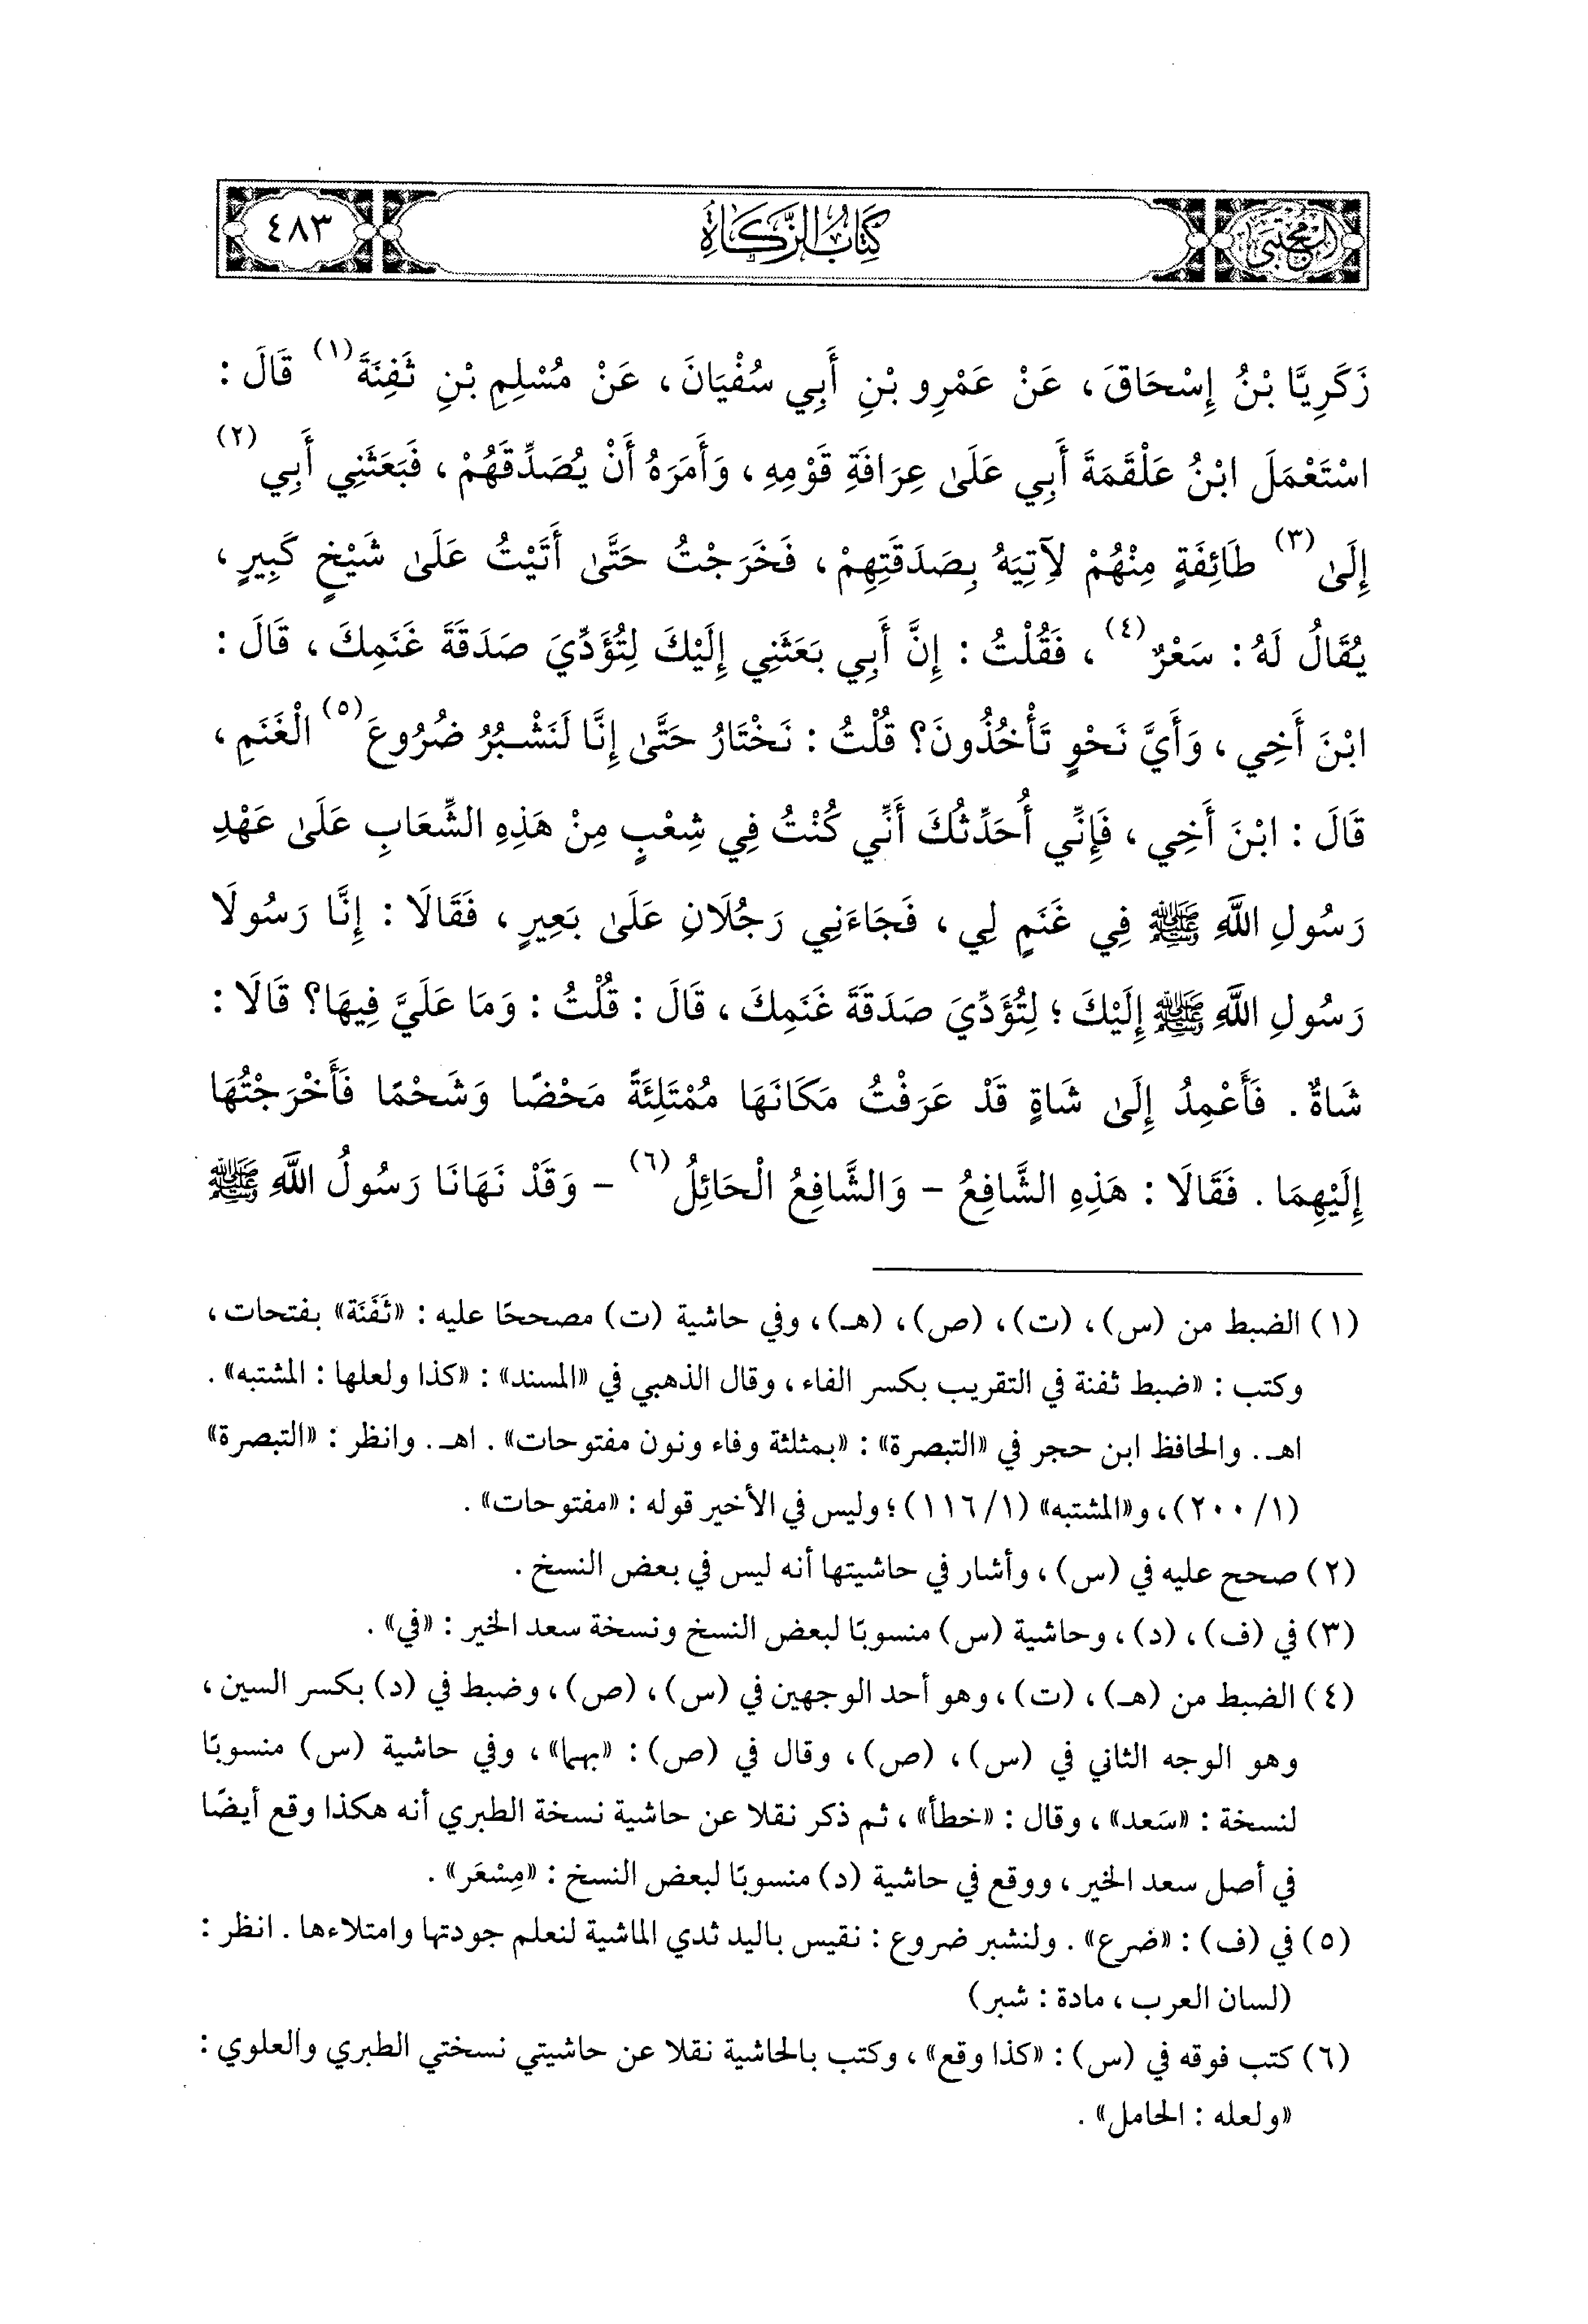 المجتبى
كِتَابُ الزَّكَاةِ
٤٨٣
زَكَرِيَّا بْنُ إِسْحَاقَ، عَنْ عَمْرِو بْنِ أَبِي سُفْيَانَ، عَنْ مُسْلِمِ بْنِ ثَفِنَةَ (١) قَالَ :
اسْتَعْمَلَ ابْنُ عَلْقَمَةَ أَبِي عَلَىٰ عِرَافَةِ قَوْمِهِ، وَأَمَرَهُ أَنْ يُصَدِّقَهُمْ، فَبَعَثَنِي أَبِي (٢)
إِلَىٰ (٣) طَائِفَةٍ مِنْهُمْ لِآتِيَهُ بِصَدَقَتِهِمْ، فَخَرَجْتُ حَتَّىٰ أَتَيْتُ عَلَىٰ شَيْخٍ كَبِيرٍ،
يُقَالُ لَهُ : سَعْرٌ (٤)، فَقُلْتُ : إِنَّ أَبِي بَعَثَنِي إِلَيْكَ لِتُؤَدِّيَ صَدَقَةَ غَنَمِكَ، قَالَ :
ابْنَ أَخِي، وَأَيَّ نَحْوٍ تَأْخُذُونَ؟ قُلْتُ : نَخْتَارُ حَتَّىٰ إِنَّا لَنَشْبُرُ ضُرُوعَ (٥) الْغَنَمِ،
قَالَ : ابْنَ أَخِي، فَإِنِّي أُحَدِّثُكَ أَنِّي كُنْتُ فِي شِعْبٍ مِنْ هَذِهِ الشِّعَابِ عَلَىٰ عَهْدِ
رَسُولِ اللَّهِ ﷺ فِي غَنَمٍ لِي، فَجَاءَنِي رَجُلَانِ عَلَىٰ بَعِيرٍ، فَقَالَا : إِنَّا رَسُولَا
رَسُولِ اللَّهِ ﷺ إِلَيْكَ ؛ لِتُؤَدِّيَ صَدَقَةَ غَنَمِكَ، قَالَ : قُلْتُ : وَمَا عَلَيَّ فِيهَا؟ قَالَا :
شَاةٌ . فَأَعْمِدُ إِلَىٰ شَاةٍ قَدْ عَرَفْتُ مَكَانَهَا مُمْتَلِئَةً مَحْضًا وَشَحْمًا فَأَخْرَجْتُهَا
إِلَيْهِمَا . فَقَالَا : هَذِهِ الشَّافِعُ - وَالشَّافِعُ الْحَائِلُ (٦) - وَقَدْ نَهَانَا رَسُولُ اللَّهِ ﷺ
(١) الضبط من (س)، (ت)، (ص)، (هـ)، وفي حاشية (ت) مصححًا عليه : «ثَفَنَة» بفتحات،
وكتب : «ضبط ثفنة في التقريب بكسر الفاء، وقال الذهبي في «المسند» : «كذا ولعلها : المشتبه» .
اهـ. والحافظ ابن حجر في «التبصرة» : «بمثلثة وفاء ونون مفتوحات» . اهـ. وانظر : «التبصرة»
(١/ ٢٠٠)، و«المشتبه» (١/ ١١٦)؛ وليس في الأخير قوله : «مفتوحات» .
(٢) صحح عليه في (س)، وأشار في حاشيتها أنه ليس في بعض النسخ .
(٣) في (ف)، (د)، وحاشية (س) منسوبًا لبعض النسخ ونسخة سعد الخير : «في» .
(٤) الضبط من (هـ)، (ت)، وهو أحد الوجهين في (س)، (ص)، وضبط في (د) بكسر السين،
وهو الوجه الثاني في (س)، (ص)، وقال في (ص) : «بهما»، وفي حاشية (س) منسوبًا
لنسخة : «سَعد»، وقال : «خطأ»، ثم ذكر نقلا عن حاشية نسخة الطبري أنه هكذا وقع أيضًا
في أصل سعد الخير، ووقع في حاشية (د) منسوبًا لبعض النسخ : «مِسْعَر» .
(٥) في (ف) : «ضرع» . ولنشبر ضروع : نقيس باليد ثدي الماشية لنعلم جودتها وامتلاءها . انظر :
(لسان العرب، مادة : شبر)
(٦) كتب فوقه في (س) : «كذا وقع»، وكتب بالحاشية نقلا عن حاشيتي نسختي الطبري والعلوي :
«ولعله : الحامل» .